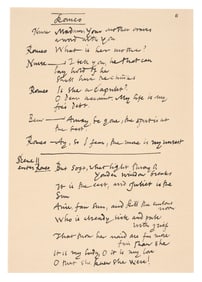 Romeo
6
Nurse Madam, your mother craves
a word with you
Romeo What is her mother?
Nurse — I tell you, he that can
lay hold of her
shall have the chinks
Romeo Is she a Capulet?
O dear account. My life is my
foes debt.
Ben — Away, be gone, the sport is at
the best
Romeo — Ay, so I fear, the more is my unrest
Scene II
enter Romeo But soft, what light through
yonder window breaks
It is the east, and Juliet is the
Sun
Arise, fair sun, and kill the envious
moon
Who is already sick and pale
with grief
That thou her maid art far more
fair than she
It is my lady, O it is my love
O that she knew she were!